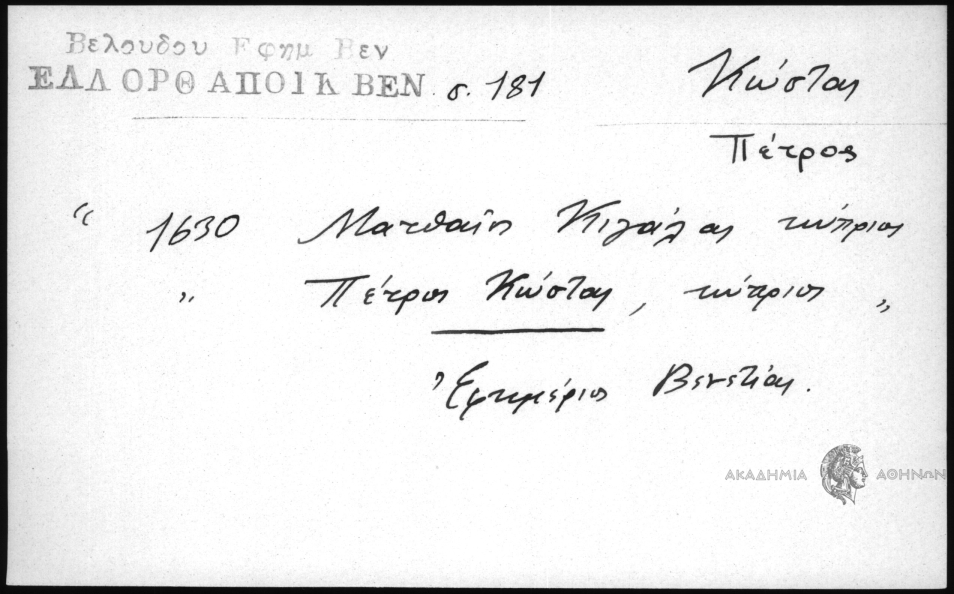 Βελουδου Εφημ Βεν
ΕΛΛ ΟΡΘ ΑΠΟΙΚ ΒΕΝ σ. 181
Κώστας
Πέτρος
“ 1630 Ματθαῖος Κιγάλας κύπριος
„ Πέτρος Κώστας, κύπριος „
Ἐφημέριος Βενετίας.
ΑΚΑΔΗΜΙΑ ΑΘΗΝΩΝ